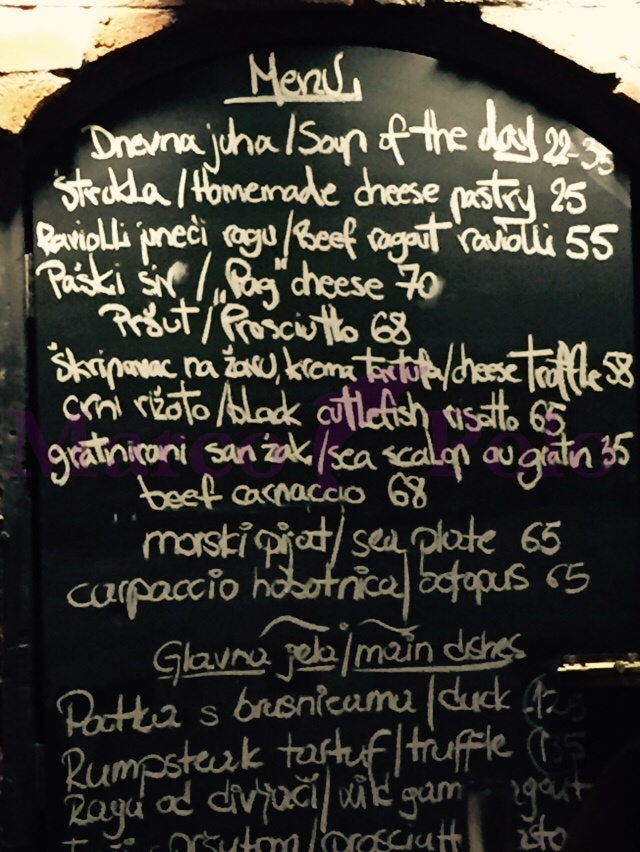 Menu
Dnevna juha/Soup of the day 22-35
Štrukla/Homemade cheese pastry 25
Raviolli juneći ragu/Beef ragout raviolli 55
Paški sir/"Pag" cheese 70
Pršut/Prosciutto 68
Škripavac na žaru, krema tartufa/cheese truffle 58
crni rižoto/black cuttlefish risotto 65
gratinirani san žak/sea scalop au gratin 35
beef carpaccio 68
morski pjat/sea plate 65
carpaccio hobotnica/octopus 65
Glavna jela/main dishes
Patka s brusnicama/duck
Rumpsteak tartuf/truffle 135
Ragu od divljači/wild gam
pršutom/prosciutt
Marco Polo